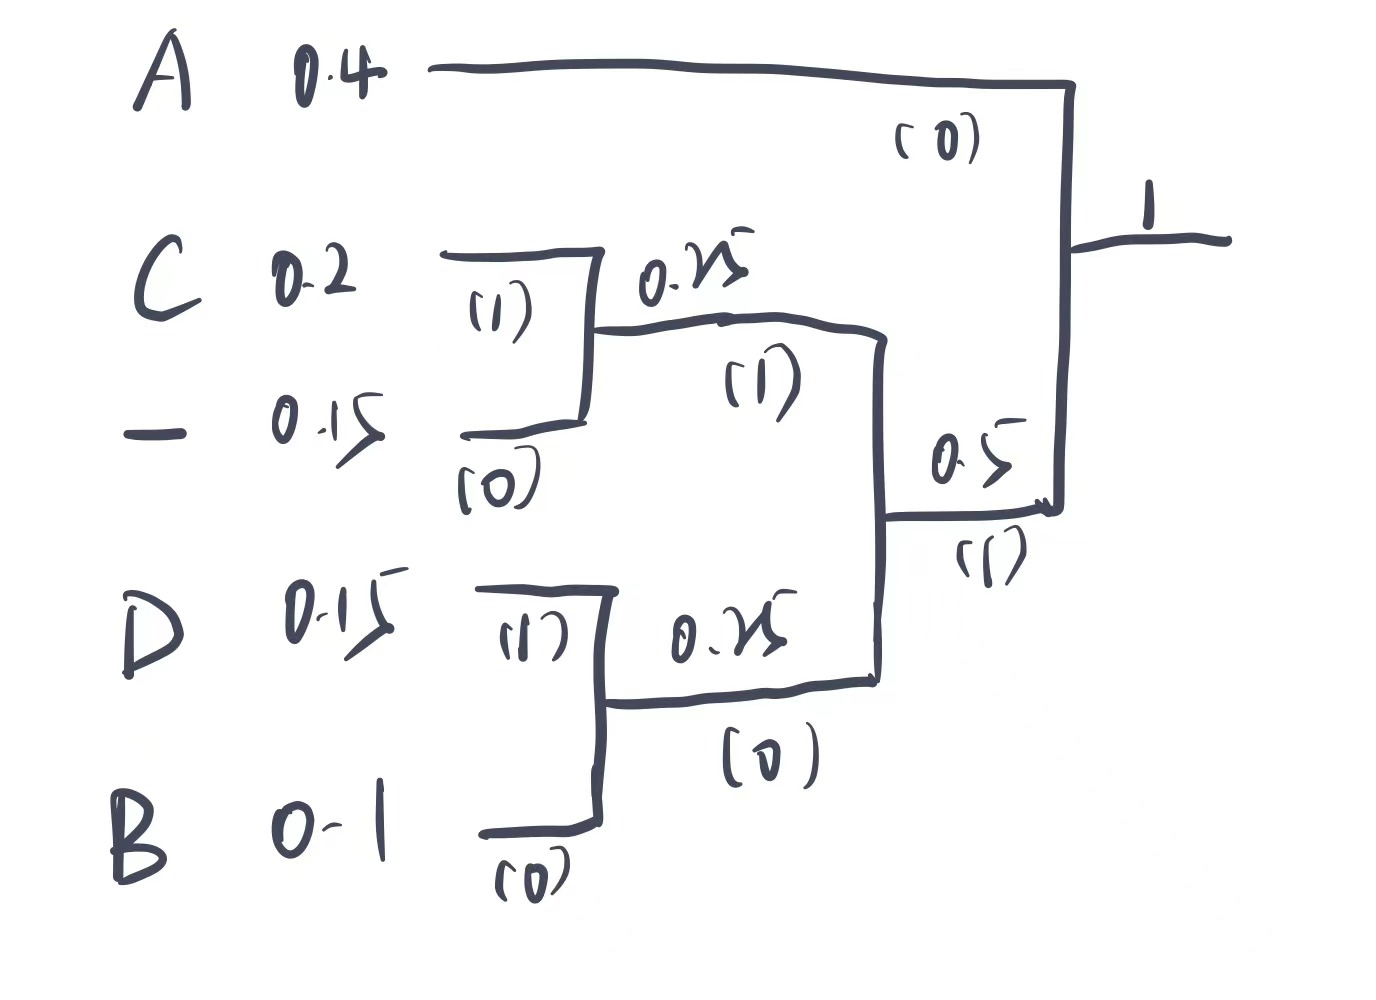 A 0.4
(0)
1
C 0.2
(1)
0.25
(1)
— 0.15
(0)
0.5
(1)
D 0.15
(1)
0.25
(0)
B 0.1
(0)